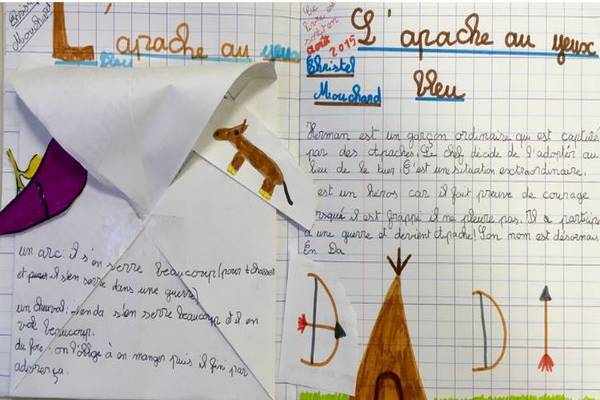 L'apache au yeux
bleu
un arc il s'en serre beaucoup (pour chasser
et puis il s'en serre dans une guerre
un cheval: enda s'en serre beaucoup et il en
vole beaucoup.
du foie: on l'oblige à en manger puis il fini par
adorer ça.
août 2015
L'apache au yeux
bleu
Christel
Mouchard
Herman est un garçon ordinaire qui est capturé
par des Apaches. Le chef décide de l'adopter au
lieu de le tuer. C'est un situation extraordinaire.
est un héros car il fait preuve de courage
lorsqu'il est frappé il ne pleure pas. Il a participé
à une guerre et devient Apache! Son nom est désormais
En Da